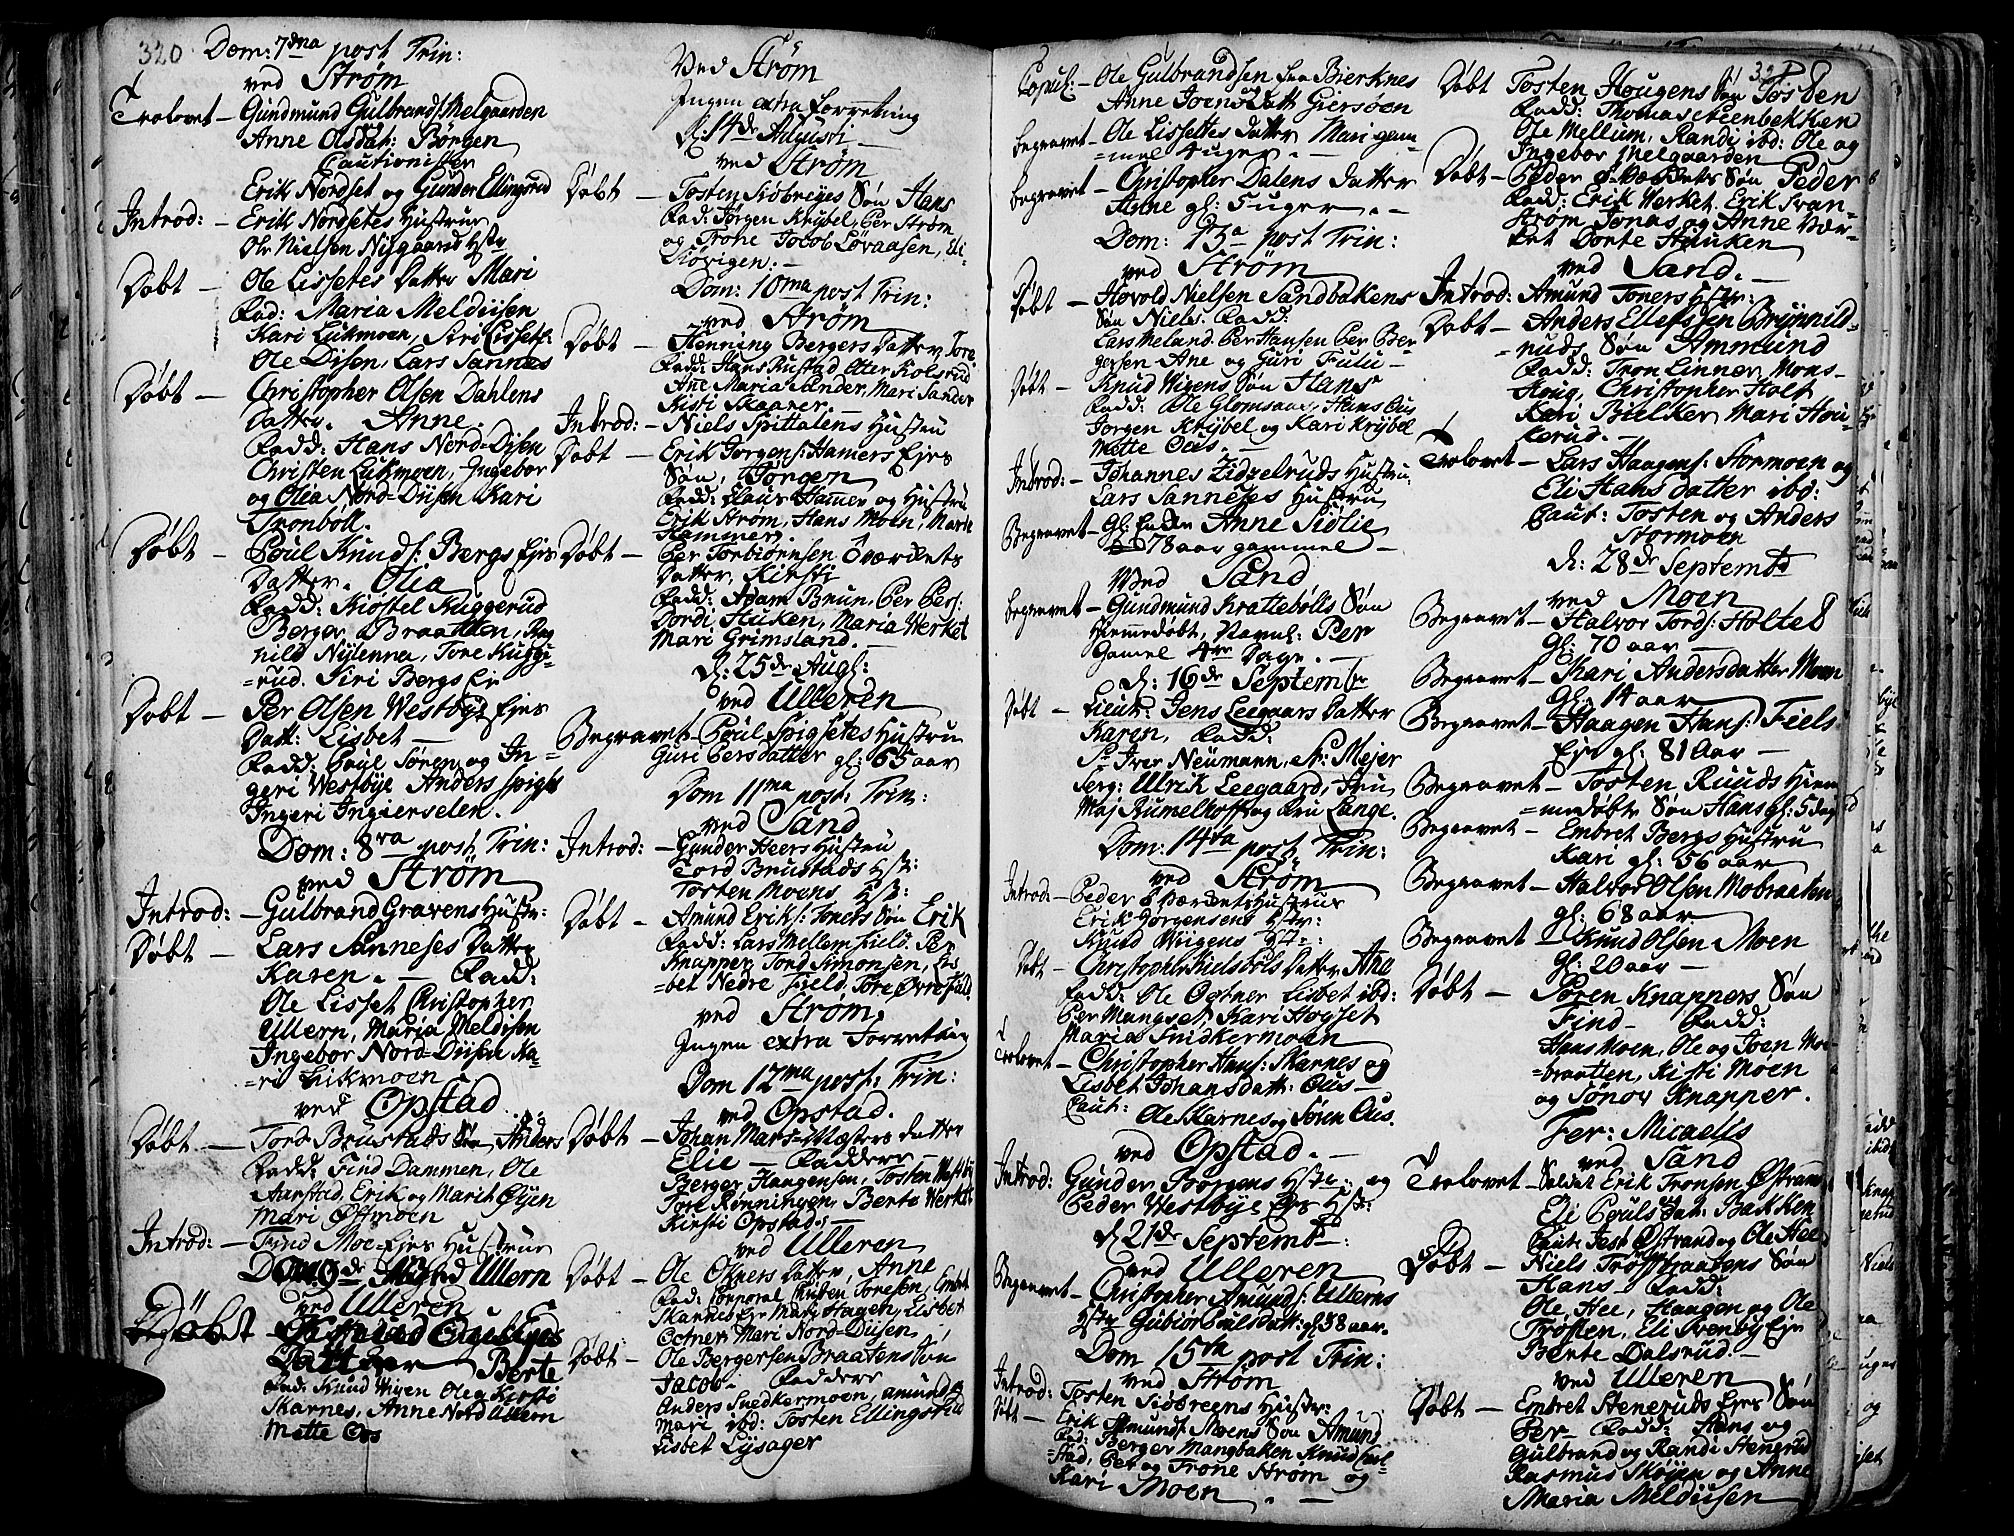 320 Dom: 7dna post Trin:
ved Strøm
Trolovet - Gundmund Gulbrands: Melgaarden
Anne Olsdat: Børgen
Cautionister
Erik Nordset og Gunder Ellingsrud
Introd: - Erik Nordsetes Hustrue
Ole Nielsen Nijgaards Hstr
Døbt - Ole Lissetes Datter Mari
Fad: Maria Meldiisen
Kari Lukmoen, Siri Lisset:
Ole Disen, Lars Sannes
Døbt - Christopher Olsen Dahlens
Datter. Anne.
Fadd: Hans Nord-Disen
Christen Lukmoen, Ingebor
og Olea Nord-Diisen Kari
Tronbøll.
Døbt - Poul Knuds: Bergs Ejes
Datter. Olia
Fadd: Kiøstel Kuggerud
Berger Braatten, Rag
nild Nylenna, Tore Kuggi-
=rud. Siri Bergs Ej
Døbt - Per Olsen Westbye Ejes
Datt: Lisbet -
Fadd: Poul Søren og In-
geri Westbye Anders Spigs
Ingeri Ingierselen.
Dom: 8va post Trin:
ved Strøm
Introd: - Gulbrand Gravens Hustr:
Døbt - Lars Sanneses Datter
Karen. - Fadd:
Ole Lisset Christopher
Ullern, Maria Meldisen
Ingebor Nord-Diisen Ka-
=ri Likmoen
ved Opstad
Døbt - Tord Brustads Søn Anders
Fadd: Find Dammen, Ole
Aarstad, Erik og Marit Øyen
Mari Østmoen
Introd: - Find Moe-Ejes Hustrue
ved Ulleren
Døbt - Engebyes
Datter Berte
Fad: Knud Wigen Ole og Kirsti
Skarnes, Anne Nord Ullern
Mette Oos
Ved Strøm
Ingen extra Forretning
d: 14de Augusti -
ved Strøm
Døbt - Tosten Siøbreyes Søn Hans
Fad: Jørgen Krybel, Per Strøm
og Trone Jacob Løvaasen, Eli
Siøvigen. -
Dom: 10ma post Trin:
ved Strøm
Døbt - Henning Bergers Datter Tore
Fadd: Hans Rustad Otter Kolsrud
Ane Maria Mender, Mari Sander
Kisti Skaarer.
Introd: - Niels Spittalens Hustru
Døbt - Erik Jorgens: Hamers Ejes
Søn, Jørgen
Fadd: Claus Hamer og Hustru
Erik Strøm, Hans Moen, Marie
Hammer.
Døbt - Per Torbiørnsen Overdets
Datter, Kirsti
Fadd: Adam Brun, Per Pers:
Dordi Huken, Maria Werket
Mari Grimsland. -
d: 25de Aug:
ved Ulleren
Begravet - Poul Spigsetes Hustru
Guri Persdatter gl: 65 aar
Dom 11ma post: Trin:
ved Sand
Introd: - Gunder Heers Hustru
Tord Brustads Hst:
Tosten Moens Hst:
Døbt - Amund Erik: Toners Søn Erik
Fadd: Lars Mellem Field. Per
Knapper, Tord Simonsen, Lis
=bet Nedre Field. Tore Øvre Field.
ved Strøm,
Ingen extra Forretning
Dom 12ma post: Trin:
ved Opstad.
Døbt - Johan Mars=Mesters datter
Elie - Faddere -
Berger Haagensen, Tosten Westbye
Tore Rønningen, Berte Werket
Kirsti Opstad: -
ved Ulleren
Døbt - Ole Okners Datter, Anne
Fad: Corporal Christen Toresen, Embret
Skarnes Ejr Mari Hagen, Lisbet
Ocktner, Mari Nord-Diisen
Døbt - Ole Bergersen Braatens Søn
Jacob - Faddere
Anders Snedkermoen, amund og
Mari ibd: Tosten Ellingsrud
Lisbet Lysager
Copul: - Ole Gulbrandsen Bierknes
Anne Joensdatt Giersøen
Begravet - Ole Lissettes datter Mari gam-
=mel 4 uger. -
Begravet - Christopher Dalens datter
Anne gl: 5 uger. -
Dom: 13a post Trin:
ved Strøm
Døbt - Havold Nielsen Sandbakens
Søn Niels: Fadd:
Lars Meland. Per Hansen Per Ber-
gersen Ane og Guri Fulu -
Døbt - Knud Wigens Søn Hans
Fadd: Ole Glomsaas, Hans Ous
Jorgen Krybel og Kari Krybel
Mette Ous. -
Introd: - Johannes Zidzelruds Hustru
Lars Sanneses Hustru
Begravet - Gl: Enken Anne Siølie
78 aar gammel -
Wed Sand
Begravet - Gundmund Krattebølls Søn
Hiemmedøbt, Navnl: Per
Gamel 4re Dage. -
d: 16de September
Døbt - Lieut: Jens Leegaars Datter
Karen, Fadd:
Sr Iver Neumann, Sr: Mejer
Serg: Ulrik Leegaard, Fru
Maj Rumelhoff og Fru Lange.
Dom: 14da post Trin:
ved Strøm
Introd: - Peder Oværdets Hustrue
Erik Jorgensens Hstr:
Knud Wiigens Hst=:
Døbt - Christoph: Kielsbøls Datter Ane
Fadd: Ole Ocktner Lisbet ibd:
Per Mangset, Kari Høyset
Maria Snidkermoen
Trolovet - Christopher Hans: Skarnes og
Lisbet Johansdatt: Ous -
Caut: Ole Skarnes og Søren Ous.
ved Opstad. -
Introd: Gunder Borgens Hst: og
Peder Westbye Ejes Hst:
d 21de Septembr:
ved Ulleren
Begravet - Christopher Amund: Ullerns
Hstr Gubiør Poulsdatt: gl: 38 aar.
Dom 15da post Trin:
ved Strøm
Introd: Tosten Siøbreens Hustr:
Døbt - Erik Amunds: Moens Søn Amund
Fad: Berger Mangbakken Knud Sul-
=stad, Per og Trone Strøm og
Kari Moen
321
Døbt Tosten Hougens Søn Tosten
Fadd: Thomas Steenbekken
Ole Mellum, Randi ibd: Ole og
Ingebor Melgaarden
Døbt - Peder Oværdets Søn Peder
Fadd: Erik Werket. Erik Svan-
Strøm, Jonas og Anne Vær-
ket Dorte Hauken
ved Sand. -
Introd: Amund Toners Hstr:
Døbt - Anders Ellefssen Brijnild-
=ruds Søn Ammund
Fadd: Tron Linner, Mons-
Houg, Christopher Holt
Kari Bielker, Mari Hou-
kerud. -
Trolovet - Lars Haagens: Stormoen og
Eli Hansdatter ibd:
Caut: Tosten og Anders
Stormoen
d: 28de Septembr
ved Moen
Begravet - Halvor Tords: Holtet
gl: 70 aar -
Begravet - Kari Andersdatter Moen
gl: 14 aar
Begravet - Haagen Hans: Fiels
Ejr gl: 81 Aar -
Begravet - Tosten Ruuds Hiem
=medøbte Søn Hans gl: 5 dage
Begravet - Embret Bergs Hustru
Kari gl: 56 aar
Begravet - Halvor Olsen Mobraaten
gl: 68 aar
Begravet - Knud Olsen Moen
gl: 20 aar -
Døbt - Søren Knappers Søn
Find - Fadd:
Hans Moen, Ole og Joen Moe-
=braatten, Kisti Moen
og Sønov Knapper.
Fer: Micaelis
ved Sand
Trolovet - Soldat Erik Tronsen Østrand
og Eli Poulsdat: Bakken
Caut: Jest Østrand og Ole Hee
Døbt - Niels Trøftbraatens Søn
Hans - Fadd:
Ole Hee, Haagen og Ole
Trøften, Eli Svenby Ejr
Berte Dalsrud. -
ved Ulleren
Døbt - Embret Steneruds Ejes Søn
Per - Fadd: Hans og
Gulbrand og Randi Stengrud
Rasmus Skøyen og Anne
Maria Meldiisen